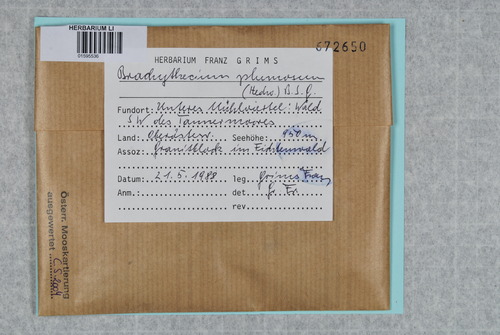 HERBARIUM LI
01595536
672650
HERBARIUM FRANZ GRIMS
Brachythecium plumosum
(Hedw.) B.S.G.
Fundort: Unteres Mühlviertel: Wald
SW des Tannermoores
Land: Oberösterr. Seehöhe: 950 m
Assoz: Granitblock im Fichtenwald
Datum: 21.5.1988 leg. Grims Franz
Anm. det. Gr. Fr.
rev.
Österr. Mooskartierung
ausgewertet